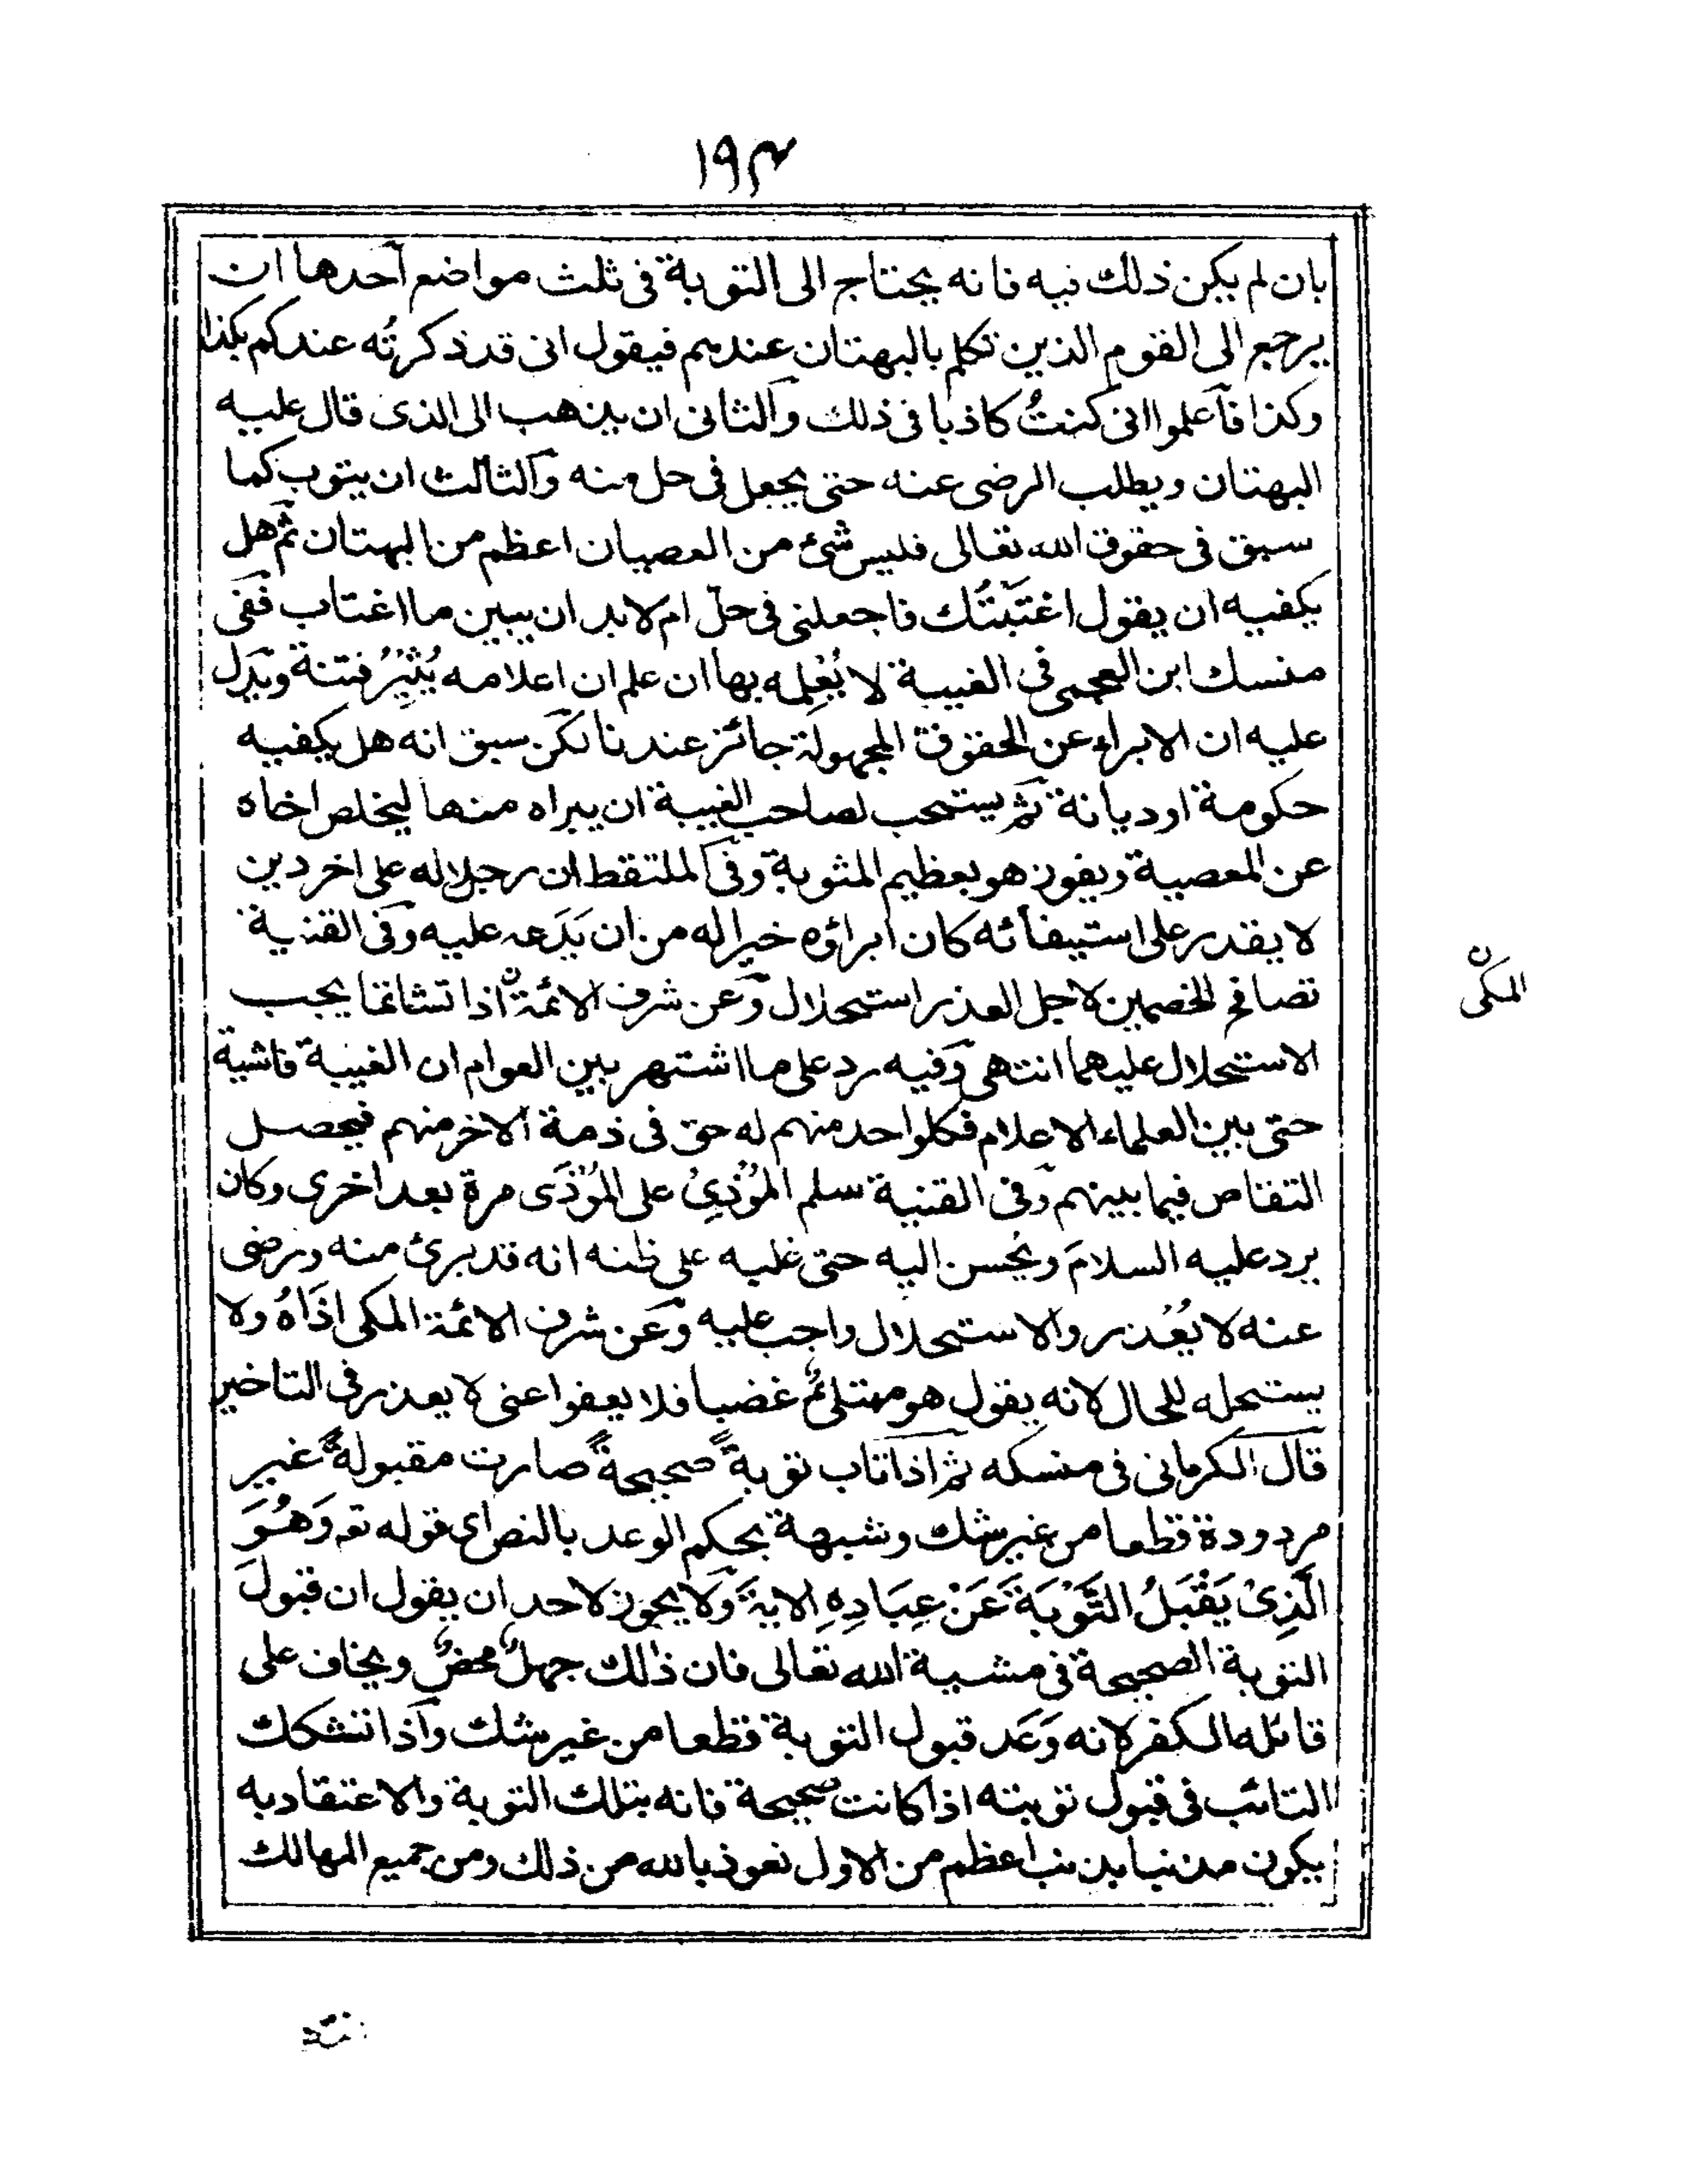 ١٩٣
بان لم يكن ذلك فيه فانه يحتاج الى التوبة فى ثلث مواضع آحدها ان
يرجع الى القوم الذين تكلم بالبهتان عندهم فيقول انى قد ذكرتُه عندكم بكذا
وكذا فآعلموا انى كنتُ كاذبا فى ذلك وآلثانى ان يذهب الى الذى قال عليه
البهتان ويطلب الرضى عنه حتى يجعل فى حل منه وآلثالث ان يتوب كما
سبق فى حقوق الله تعالى فليس شئ من العصيان اعظم من البهتان ثم هل
يكفيه ان يقول اغتَبْتُك فاجعلنى فى حلّ ام لابد ان يبين ما اغتاب ففى
منسك ابن العجمى فى الغيبة لا يُعْلِمه بها ان علم ان اعلامه يُثِيْرُ فتنة ويدل
عليه ان الابراء عن الحقوق المجهولة جائز عندنا لكن سبق انه هل يكفيه
حكومة او ديانة ثم يستحب لصاحب الغيبة ان يبراه منها ليخلص اخاه
عن المعصية ويفوز هو بعظيم المثوبة وفى الملتقط ان رجلا له على اخر دين
لا يقدر على استيفائه كان ابراؤه خيرا له من ان يَدَعه عليه وفى القنية
تصافح الخصمين لاجل العذر استحلال وعن شرف الائمة اذا تشاتما يجب
المكى
الاستحلال عليهما انتهى وفيه رد على ما اشتهر بين العوام ان الغيبة فاشية
حتى بين العلماء الاعلام فكلوا حد منهم له حق فى ذمة الاخر منهم فيحصل
التقاص فيما بينهم وفى القنية سلم المُؤْذِىْ على المُؤْذَى مرة بعد اخرى وكان
يرد عليه السلامَ ويُحسن اليه حتى غلبه على ظنه انه قد برئ منه ورضى
عنه لا يُعْذر والاستحلال واجب عليه وعن شرف الائمة المكى اذَاهُ ولا
يستحله للحال لانه يقول هو ممتلئٌ غضبا فلا يعفوا عنى لا يعذر فى التاخير
قال الكرمانى فى منسكه ثم اذا تاب توبةً صحيحةً صارت مقبولةً غير
مردودة قطعا من غير شك وشبهة بحكم الوعد بالنص اى قوله تع وَهُوَ
الَّذِىْ يَقْبَلُ التَّوْبَةَ عَنْ عِبَادِهِ الاية ولا يجوز لاحد ان يقول ان قبول
التوبة الصحيحة فى مشية الله تعالى فان ذالك جهلٌ محضٌ ويخاف على
قائله الكفر لانه وَعَد قبول التوبة قطعا من غير شك وآذا تشكك
التائب فى قبول توبته اذا كانت صحيحة فانه بتلك التوبة والاعتقاد به
يكون مذنبا بذنب اعظم من الاول نعوذ بالله من ذلك ومن جميع المهالك